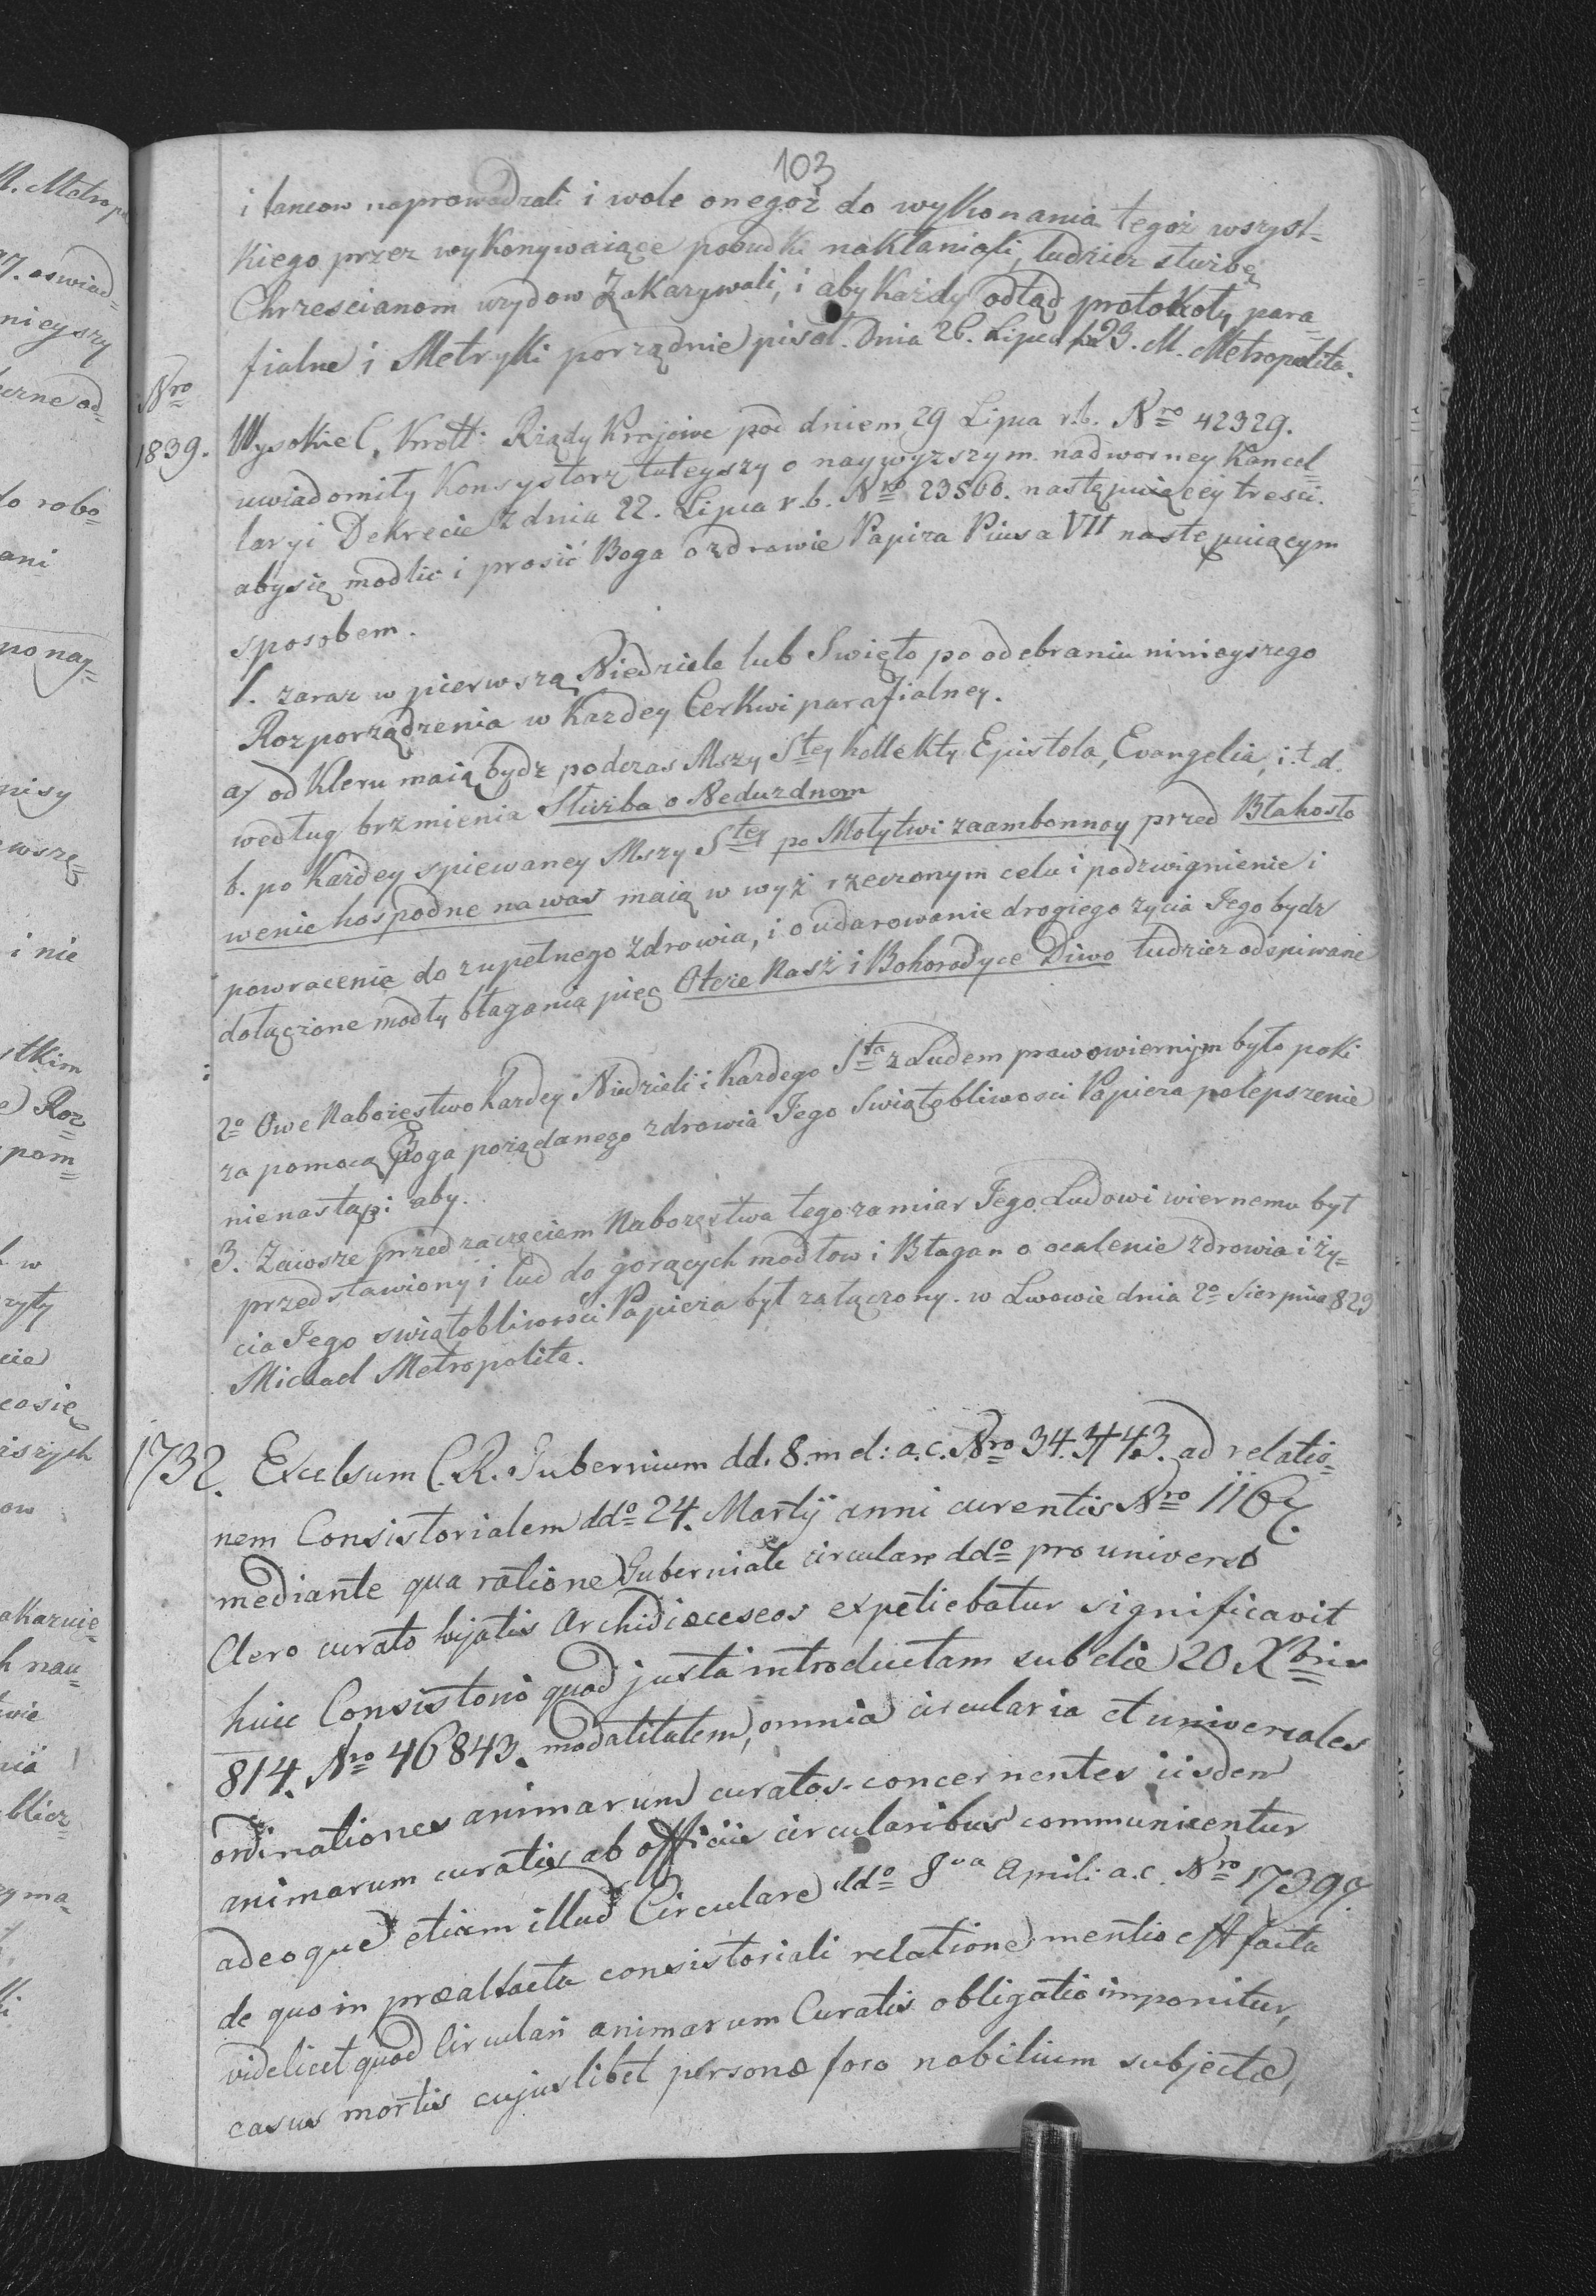 103
i tancow naprowadzali i wole onegoż do wykonania tegoż wszyst=
kiego przez wykonywaiące pobudki nakłaniali, tudzież służbę
Chrzescianom uzydow Zakazywali, i aby każdy odtąd protokoły para=
fialne i Metryki porządnie pisał. Dnia 26. Lipca 823. M. Metropolita.
Nro
1839. Wysokie C. Krolł: Rządy Krajowe pod dniem 29 Lipca r.b. Nro 42329.
uwiadomiły Konsystorz tuteyszy o naywyzszym nadworney Kancel=
laryi Dekrecie z dnia 22. Lipca r.b. Nro 23566. następuiącey tresci.
aby się modlic i prosić Boga o zdrowie Papiża Piusa VII następuiącym
sposobem.
1. zaraz w pierwszą Niedziele lub Swięto po odebraniu ninieyszego
Rozporządzenia w Kazdey Cerkwi parafialney.
a/ od Kleru maią bydz podczas Mszy Stey Kollekty, Epistola, Evangelia, i.t.d.
według brzmienia Służba o Neduzdnom
b. po Każdey spiewaney Mszy Stey po Mołytwi zaambonnoy przed Błahosło
wenie hospodne na was maią w wyż rzeczonym celu i podzwignienie i
powracenie do zupełnego zdrowia, i o udarowanie drogiego zycia Jego bydz
dołączone modły błagania pięc Otcze Nasz i Bohorodyce Diwo tudzież odspiwanie
2o Owe Nabożęstwo kazdey Niedzieli i kazdego Sta z Ludem prawowiernym było poki
za pomocą Boga pożądanego zdrowia Jego Swiątobliwosci Papieża polepszenie
nienastąpi aby.
3. Zawsze przed zaczęciem Nabożęstwa tego zamiar Jego Ludowi wiernemu był
przedstawiony i lud do gorących modłow i Błagan o ocalenie zdrowia i ży=
cia Jego swiątobliwosci Papieża był załączony. w Lwowie dnia 2o Sierpnia 823
Michael Metropolita.
1732. Excelsum C.R. Gubernium dd. 8. m d: a.c. Nro 34.343. ad relatio=
nem Consistorialem ddo 24. Martij anni curentis Nro 1167.
mediante qua ratione Guberniale circulare ddo pro universo
Clero curato hijatis Archidioeceseos expetiebatur significavit
huic Consistorio quod justa introductam sub die 20 Xbris
814. Nro 46843. modalitatem, omnia circularia et universales
ordinationes animarum curatos concernentes iisdem
animarum curatis ab officiis circularibus communicentur
adeoque etiam illud Circulare ddo 8va April: a.c. Nro 17399.
de quo in præaltacta consistoriali relatione mentio est facta
videlicet quod Circulari animarum Curatis obligatio imponitur,
casus mortis cujuslibet personæ foro nobilium subjectæ,